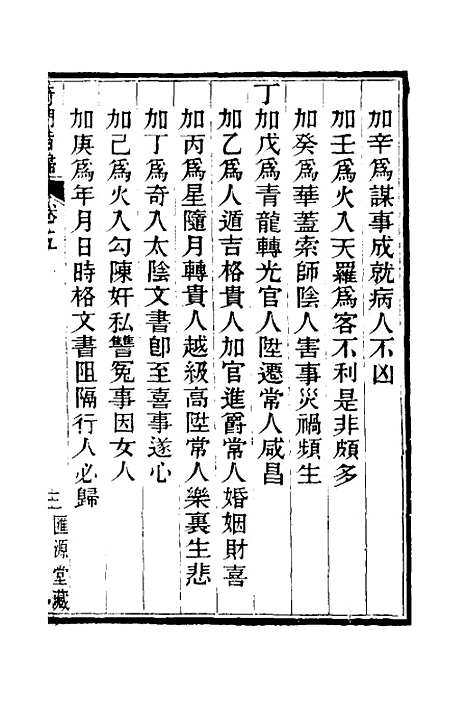 加辛爲謀事成就病人不凶
加壬爲火入天羅爲客不利是非頗多
加癸爲華蓋索師陰人害事災禍頻生
丁加戊爲青龍轉光官人陞遷常人咸昌
加乙爲人遁吉格貴人加官進爵常人婚姻財喜
加丙爲星隨月轉貴人越級高陞常人樂裏生悲
加丁爲奇入太陰文書卽至喜事遂心
加己爲火入勾陳奸私讐冤事因女人
加庚爲年月日時格文書阻隔行人必歸
五
匯源堂藏